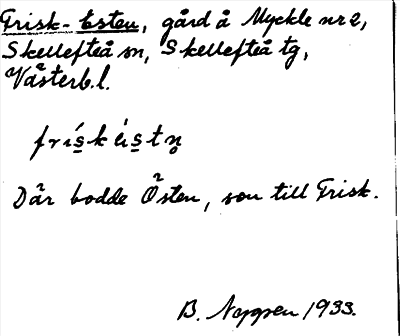 Frisk-Esten, gård å Myckle nr 2,
Skellefteå sn, Skellefteå tg,
Västerb.l.
frískéistn̥
Där bodde Östen, son till Frisk.
B. Nygren 1933.